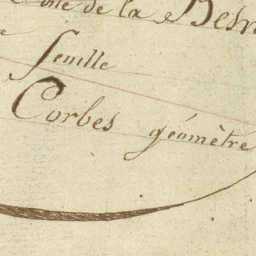 de la Besv
feuille
Corbes géomètre